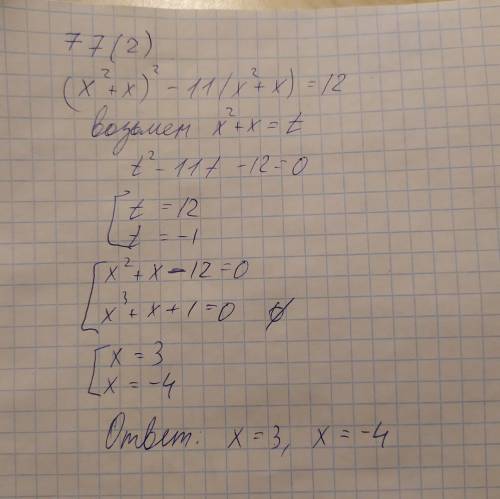 77(2)
(x²+x)² - 11(x²+x) = 12
возьмем x²+x = t
t² - 11t - 12 = 0
[ t = 12
t = -1
[ x² + x - 12 = 0
x³ + x + 1 = 0 ∅
[ x = 3
x = -4
Ответ: x = 3, x = -4